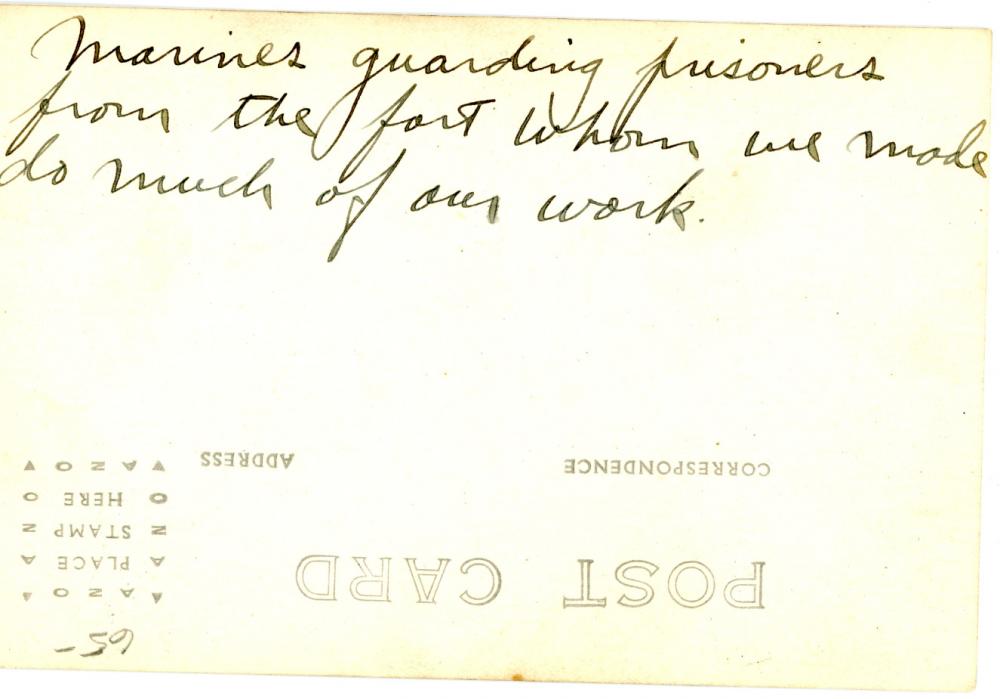 Marines guarding prisoners
from the fort whom we made
do much of our work.
ADDRESS
CORRESPONDENCE
POST CARD
AZO
PLACE
STAMP
HERE
AZO
65-